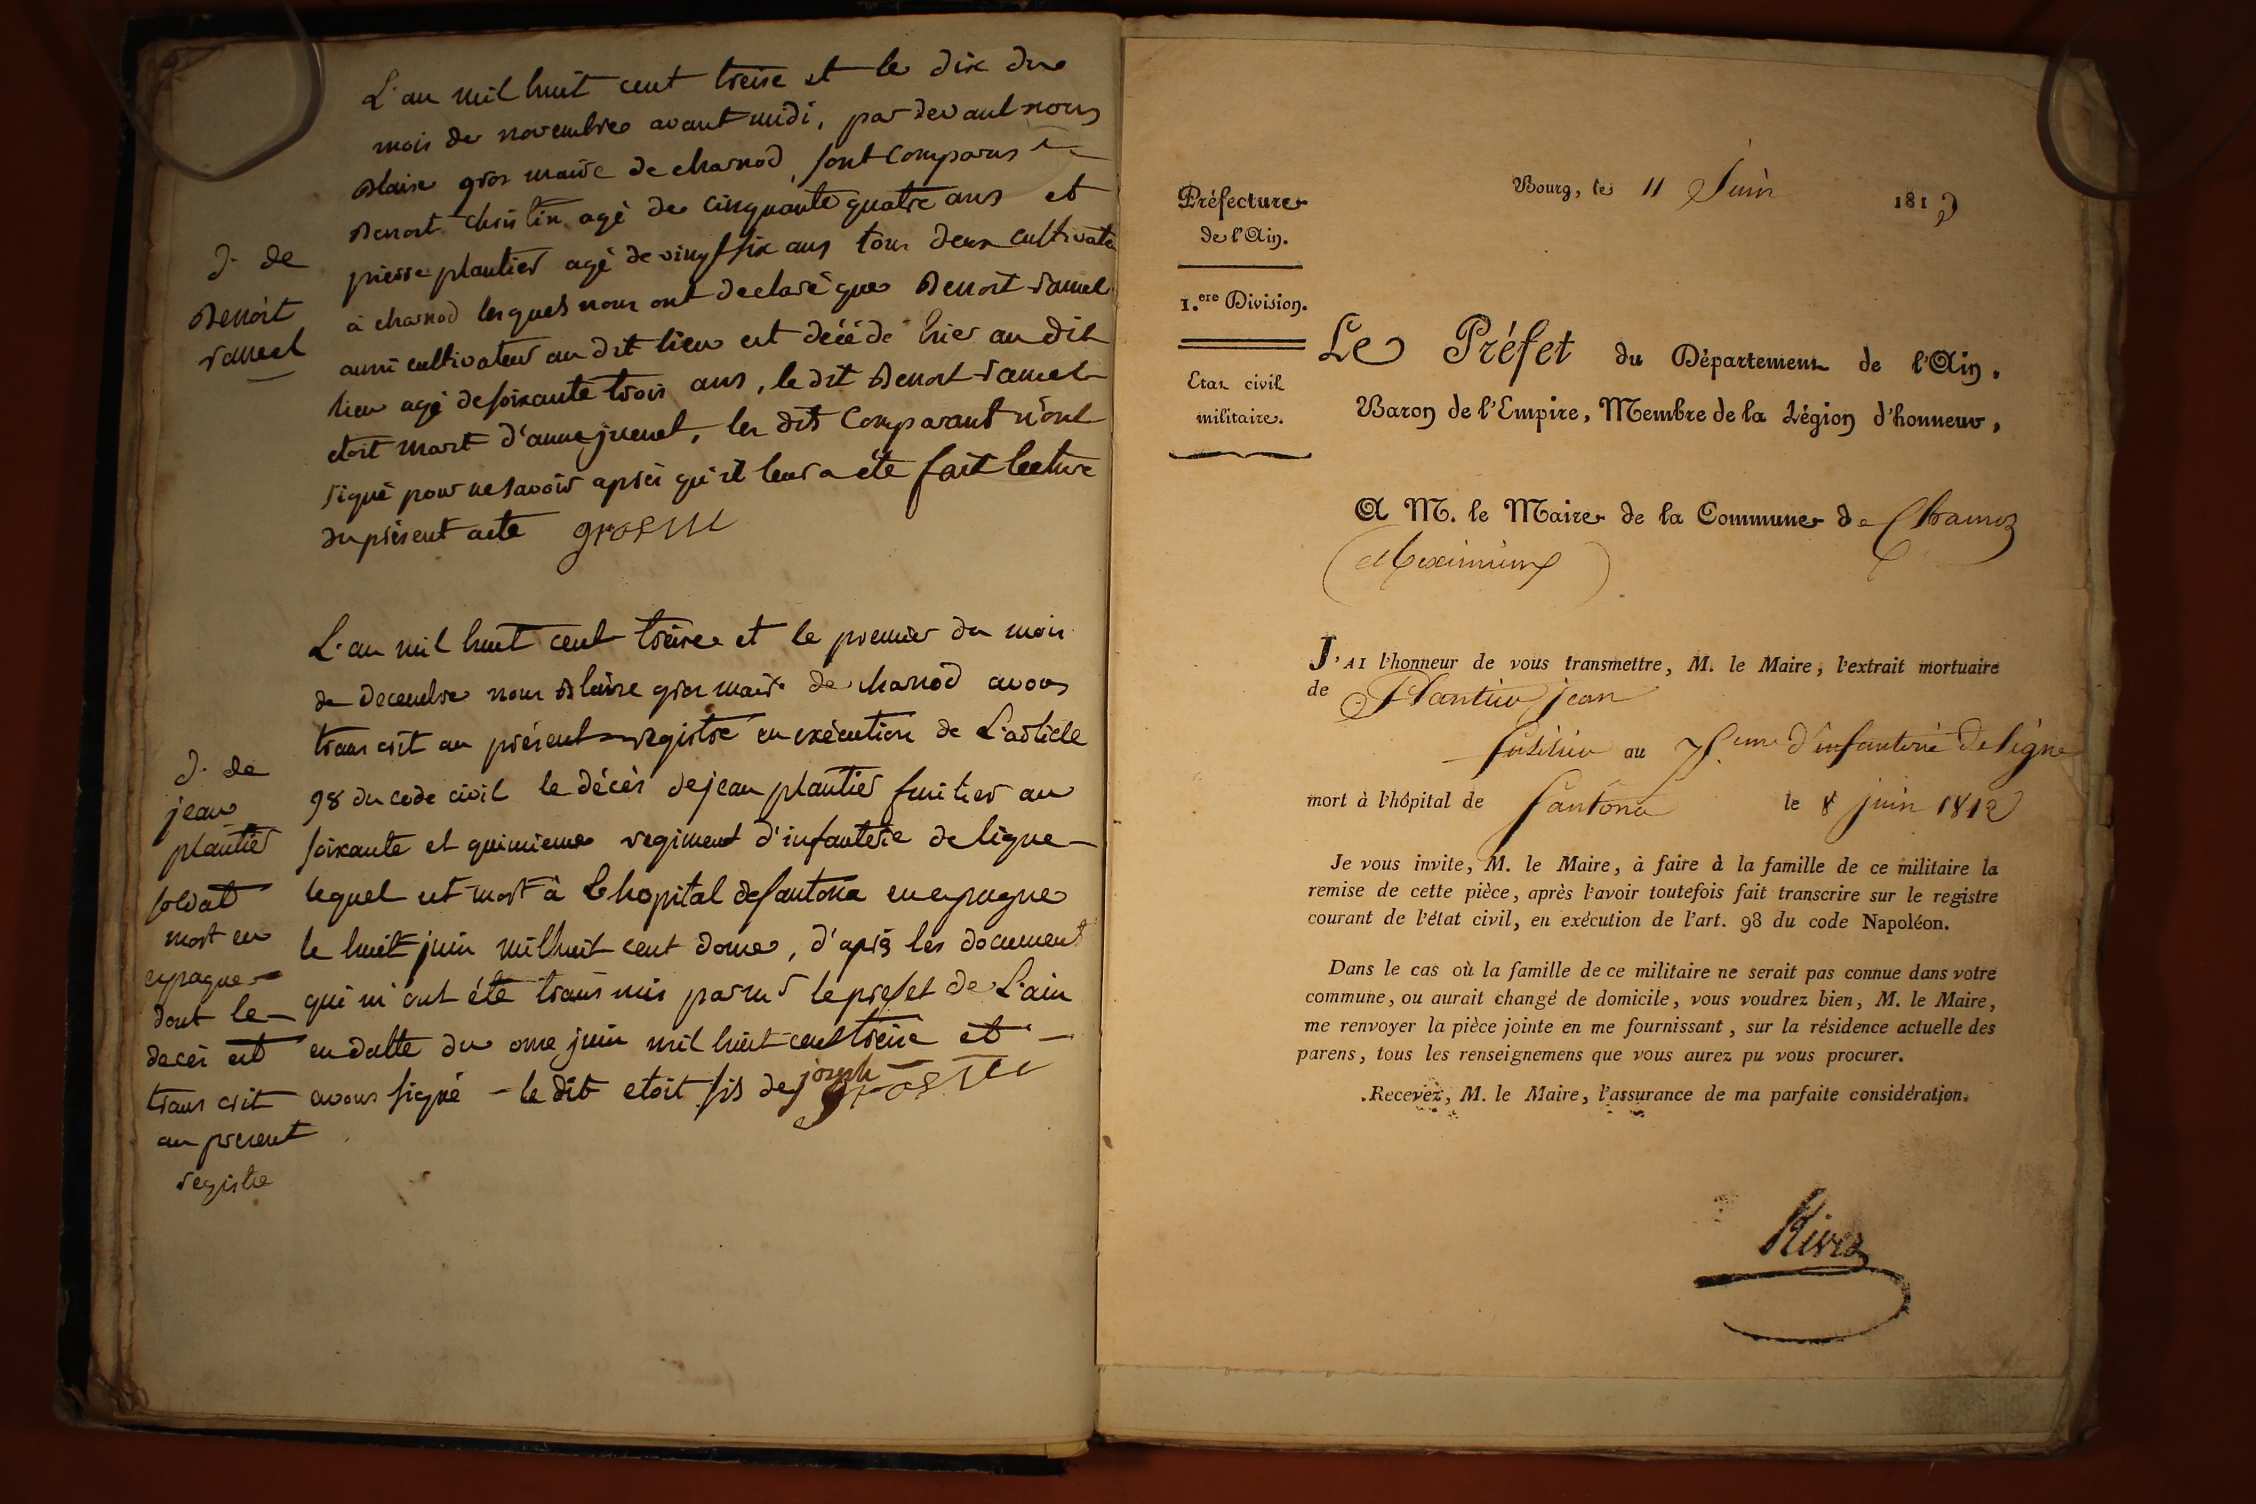 L'an mil huit cent treise et le dix du
mois de novembre avant midi, par devant nous
Blaise gros maire de charnod, sont comparus
Benoit christin agé de cinquante quatre ans et
pierre plantier agé de vingt six ans tous deux cultivate
à charnod lesquels nous ont declaré que Benoit ramel
aussi cultivateur au dit lieu est décédé hier au dit
lieu agé de soixante trois ans, le dit Benoit ramel
etoit mari d'anne juenet, les dits Comparant n'ont
signé pour ne savoir après qu'il leur a été fait lecture
du présent acte gros me
d. de
Benoit
ramel
L'an mil huit cent treise et le premier du mois
de decembre nous Blaise gros maire de charnod avons
transcrit au présent registre en exécution de L'article
98 du code civil le décès de jean plantier fusilier au
soixante et quinsieme regiment d'infanterie de ligne
lequel est mort à l'hopital de santona en espagne
le huit juin mil huit cent douse, d'après les document
qui m'ont été transmis par mr le prefet de L'ain
en datte du onse juin mil huit cent treise et
avons signé - le dit etoit fils de joseph gros me
d. de
jean
plantier
soldat
mort en
espagne
dont le
decès est
transcrit
au present
registre
Préfecture
de l'Ain.
1.ere Division.
Etat civil
militaire.
Bourg, le 11 Juin 1813
Le Préfet du Département de l'Ain,
Baron de l'Empire, Membre de la Légion d'honneur,
A M. le Maire de la Commune de Charnoz
(Meximieux)
J'AI l'honneur de vous transmettre, M. le Maire, l'extrait mortuaire
de Plantier jean
fusilier au 75.eme d'infanterie de ligne
mort à l'hôpital de Santona le 8 juin 1812
Je vous invite, M. le Maire, à faire à la famille de ce militaire la
remise de cette pièce, après l'avoir toutefois fait transcrire sur le registre
courant de l'état civil, en exécution de l'art. 98 du code Napoléon.
Dans le cas où la famille de ce militaire ne serait pas connue dans votre
commune, ou aurait changé de domicile, vous voudrez bien, M. le Maire,
me renvoyer la pièce jointe en me fournissant, sur la résidence actuelle des
parens, tous les renseignemens que vous aurez pu vous procurer.
Recevez, M. le Maire, l'assurance de ma parfaite considération.
Rivet